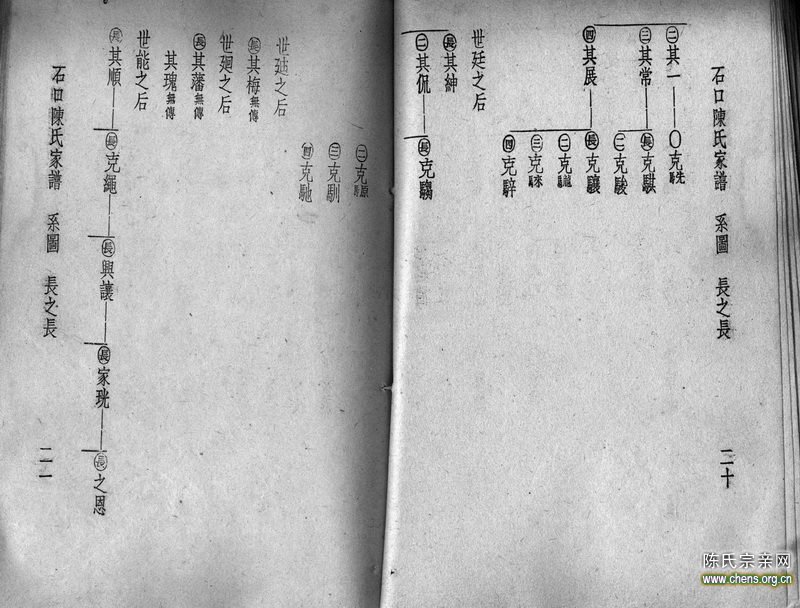 石口陳氏家譜 系圖 長之長 二十
㊁其一 〇克𩣑
㊂其常 ㊏長克騏
㊁克駿
㊃其展 長克驤
㊁克
㊂克騋
㊃克騂
世廷之后
長其紳
㊁其侃 長克騶
㊁克騵
㊂克馴
㊃克馳
世廸之后
長其梅無傳
世廻之后
長其藩無傳
其瑰無傳
世能之后
長其順 長克繩 長興讓 長家珖 長之恩
石口陳氏家譜 系圖 長之長 二一
陈氏宗亲网
www.chens.org.cn